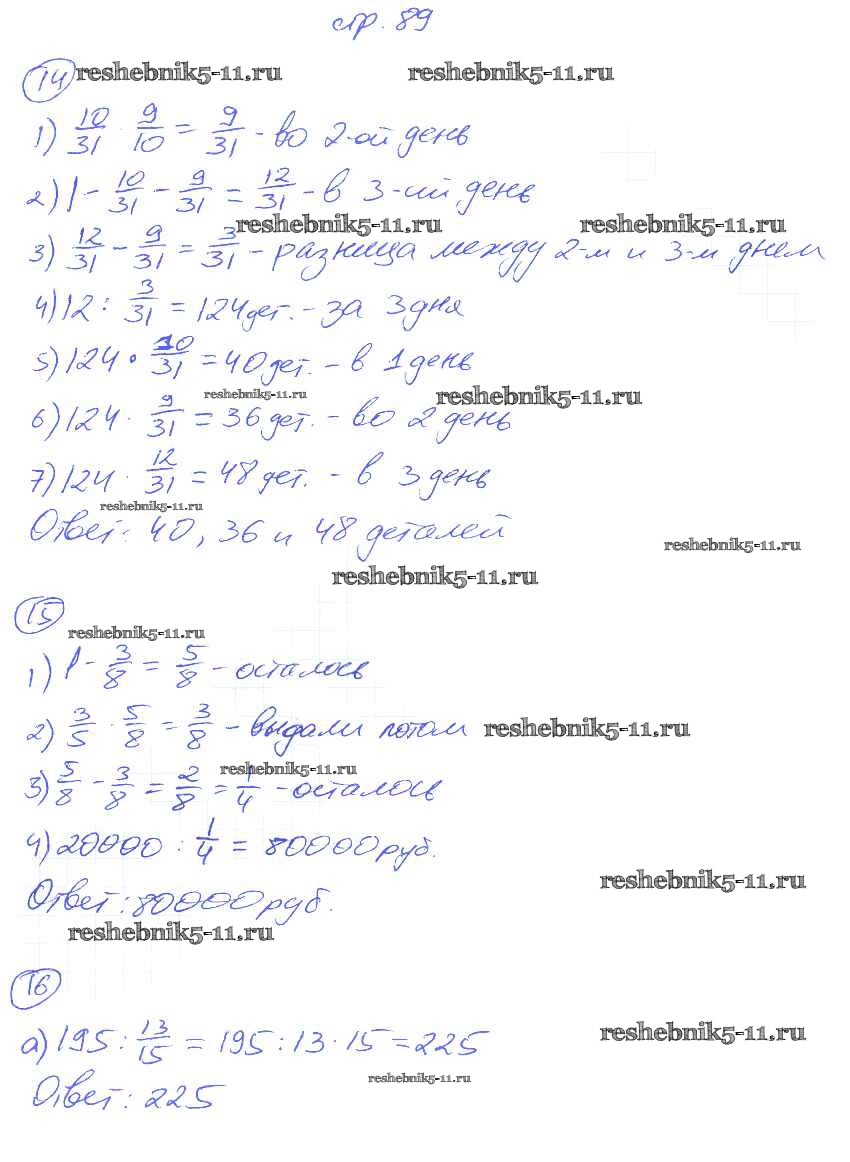 стр. 89
14 reshebnik5-11.ru reshebnik5-11.ru
1) 10/31 · 9/10 = 9/31 - во 2-ой день
2) 1 - 10/31 - 9/31 = 12/31 - в 3-ий день
reshebnik5-11.ru reshebnik5-11.ru
3) 12/31 - 9/31 = 3/31 - разница между 2-м и 3-м днем
4) 12 : 3/31 = 124 дет. - за 3 дня
5) 124 · 10/31 = 40 дет. - в 1 день
reshebnik5-11.ru reshebnik5-11.ru
6) 124 · 9/31 = 36 дет. - во 2 день
7) 124 · 12/31 = 48 дет. - в 3 день
reshebnik5-11.ru
Ответ: 40, 36 и 48 деталей
reshebnik5-11.ru
reshebnik5-11.ru
15
reshebnik5-11.ru
1) 1 - 3/8 = 5/8 - осталось
2) 3/5 · 5/8 = 3/8 - выдали потом reshebnik5-11.ru
reshebnik5-11.ru
3) 5/8 - 3/8 = 2/8 = 1/4 - осталось
4) 20000 : 1/4 = 80000 руб.
reshebnik5-11.ru
Ответ: 80000 руб.
reshebnik5-11.ru
16
а) 195 : 13/15 = 195 : 13 · 15 = 225 reshebnik5-11.ru
reshebnik5-11.ru
Ответ: 225